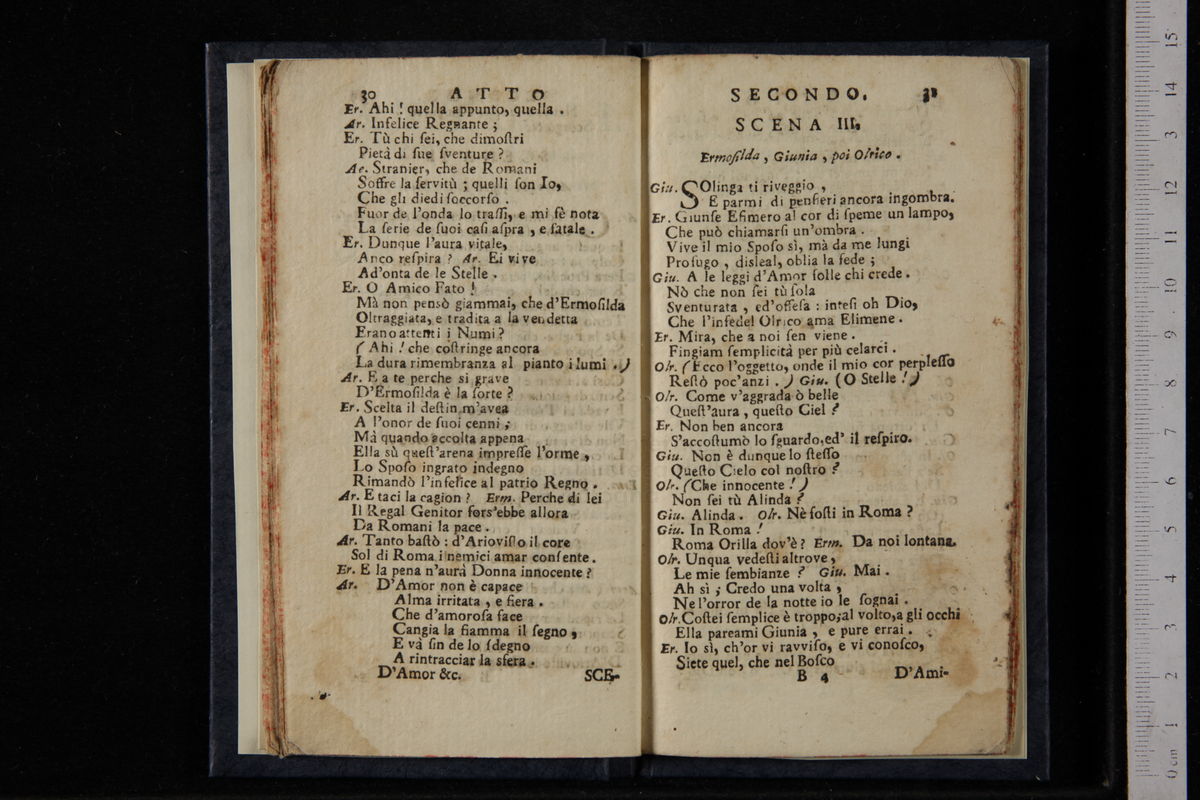 30 ATTO
Er. Ahi! quella appunto, quella.
Ar. Infelice Regnante;
Er. Tù chi ſei, che dimoſtri
Pietà di ſue ſventure?
Ar. Stranier, che de Romani
Soffre la ſervitù; quelli ſon Io,
Che gli diedi ſoccorſo.
Fuor de l'onda lo traſſi, e mi fè nota
La ſerie de ſuoi caſi aſpra, e fatale.
Er. Dunque l'aura vitale,
Anco reſpira? Ar. Ei vive
Ad'onta de le Stelle.
Er. O Amico Fato!
Mà non pensò giammai, che d'Ermoſilda
Oltraggiata, e tradita a la vendetta
Erano attenti i Numi?
( Ahi! che coſtringe ancora
La dura rimembranza al pianto i lumi.)
Ar. E a te perche sì grave
D'Ermoſilda è la ſorte?
Er. Scelta il deſtin m'avea
A l'onor de ſuoi cenni;
Mà quando accolta appena
Ella sù queſt'arena impreſſe l'orme,
Lo Spoſo ingrato indegno
Rimandò l'infelice al patrio Regno.
Ar. E taci la cagion? Erm. Perche di lei
Il Regal Genitor fors'ebbe allora
Da Romani la pace.
Ar. Tanto baſtò: d'Arioviſto il core
Sol di Roma i nemici amar conſente.
Er. E la pena n'aurà Donna innocente?
Ar. D'Amor non è capace
Alma irritata, e fiera.
Che d'amoroſa face
Cangia la fiamma il ſegno,
E và ſin de lo ſdegno
A rintracciar la sfera.
D'Amor &c. SCE-
SECONDO. 31
SCENA III.
Ermoſilda, Giunia, poi Olrico.
Giu. SOlinga ti riveggio,
E parmi di penſieri ancora ingombra.
Er. Giunſe Efimero al cor di ſpeme un lampo,
Che può chiamarſi un'ombra.
Vive il mio Spoſo sì, mà da me lungi
Profugo, disleal, oblia la fede;
Giu. A le leggi d'Amor folle chi crede.
Nò che non ſei tù ſola
Sventurata, ed'offeſa: inteſi oh Dio,
Che l'infedel Olrico ama Elimene.
Er. Mira, che a noi ſen viene.
Fingiam ſemplicità per più celarci.
Olr. (Ecco l'oggetto, onde il mio cor perpleſſo
Reſtò poc'anzi.) Giu. (O Stelle!)
Olr. Come v'aggrada ò belle
Queſt'aura, queſto Ciel?
Er. Non ben ancora
S'accoſtumò lo ſguardo, ed' il reſpiro.
Giu. Non è dunque lo ſteſſo
Queſto Cielo col noſtro?
Olr. (Che innocente!)
Non ſei tù Alinda?
Giu. Alinda. Olr. Nè foſti in Roma?
Giu. In Roma!
Roma Orilla dov'è? Erm. Da noi lontana.
Olr. Unqua vedeſti altrove,
Le mie ſembianze? Giu. Mai.
Ah sì; Credo una volta,
Ne l'orror de la notte io le ſognai.
Olr. Coſtei ſemplice è troppo; al volto, a gli occhi
Ella pareami Giunia, e pure errai.
Er. Io sì, ch'or vi ravviſo, e vi conoſco,
Siete quel, che nel Boſco
B 4 D'Ami-
0 cm 1 2 3 4 5 6 7 8 9 10 11 12 3 14 15